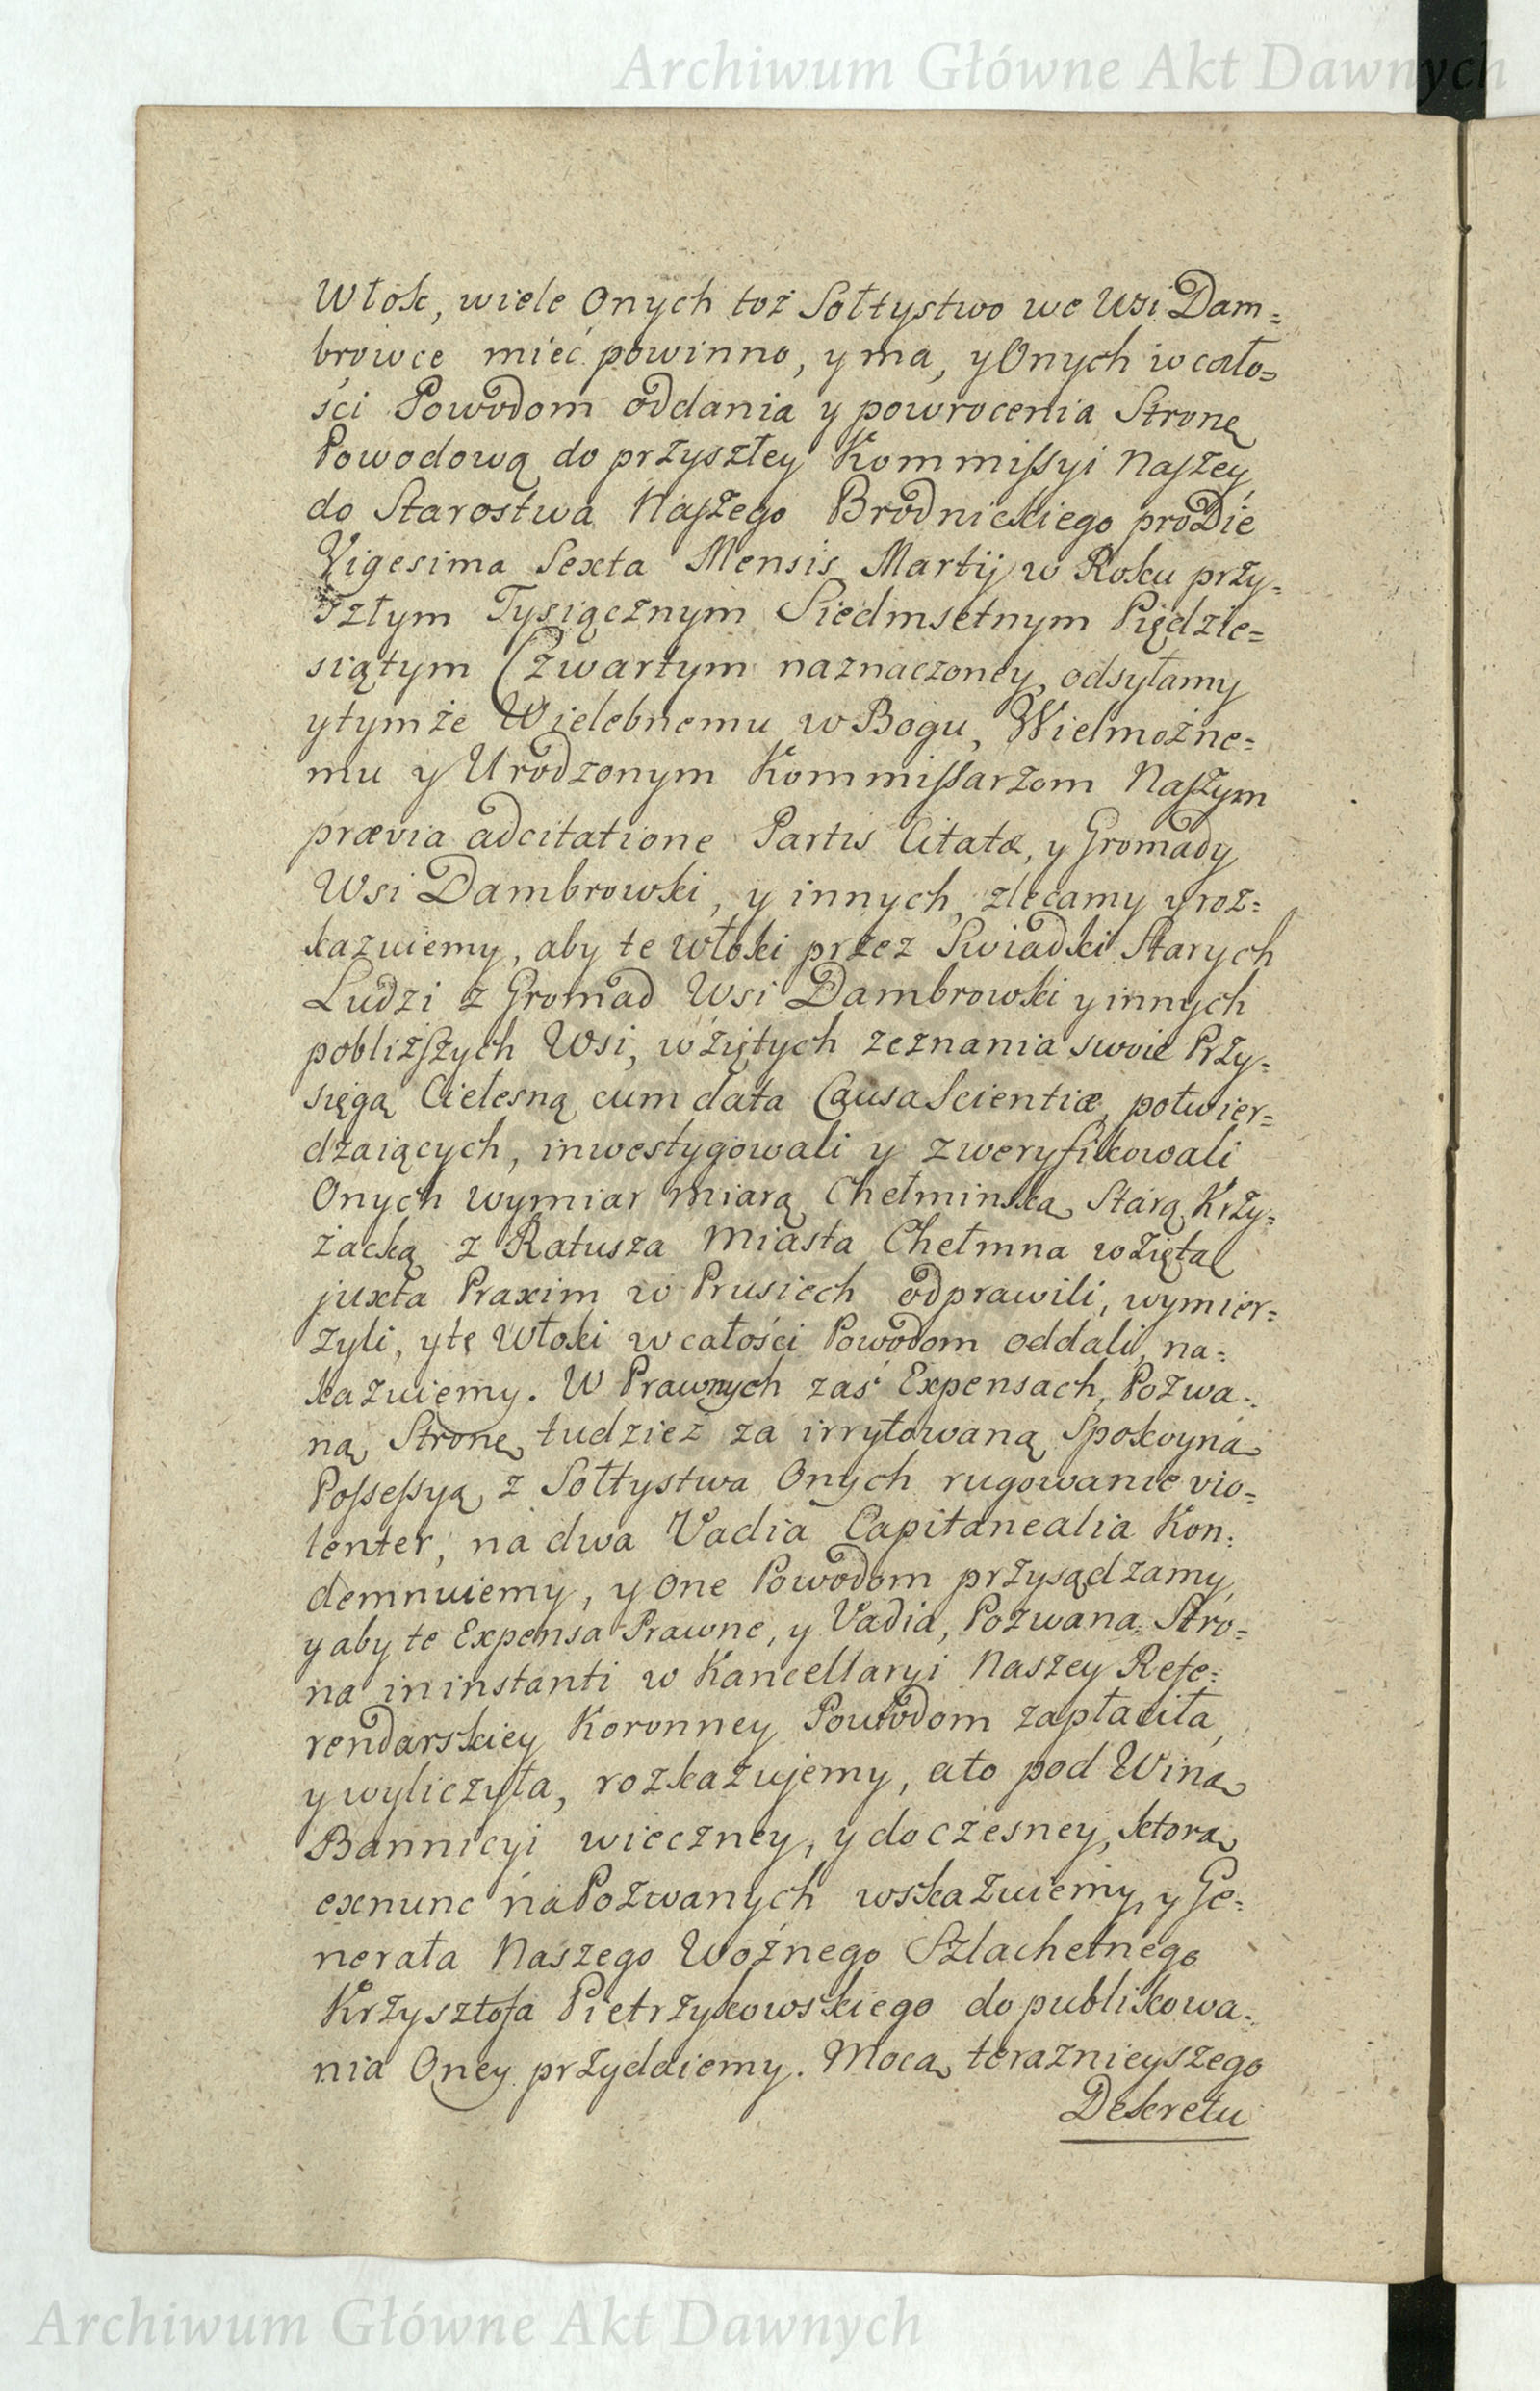 Archiwum Główne Akt Dawnych
Włok, wiele Onych toż Sołtystwo we Wsi Dam=
browce mieć powinno, y ma, y Onych w cało=
ści Powodom oddania y powrocenia Stronę
Powodową do przyszłey Kommissyi Naszey
do Starostwa Naszego Brodnickiego pro Die
Vigesima Sexta Mensis Martij w Roku przy=
szłym Tysiącznym Siedmsetnym Piędzie=
siątym Czwartym naznaczoney, odsyłamy
y tymże Wielebnemu w Bogu, Wielmożne=
mu y Urodzonym Kommissarzom Naszym
prævia adcitatione Partis Citatæ, y Gromady
Wsi Dambrowki, y innych, zlecamy y roz=
kazuiemy, aby te włoki przez Swiadki Starych
Ludzi z Gromad Wsi Dambrowki y innych
pobliższych Wsi, wziętych zeznania swoie Przy=
sięgą Cielesną cum data Causa Scientiæ, potwier=
dzaiących, inwestygowali y zweryfikowali
Onych wymiar miarą Chełminską Starą Krzy=
żacką z Ratusza Miasta Chełmna wziętą
juxta Praxim w Prusiech odprawili, wymier=
zyli, y te Włoki w całości Powodom oddali, na=
kazuiemy. W Prawnych zaś Expensach, Pozwa=
ną Stronę, tudzież za irrytowaną Spokoyną
Possessyą z Sołtystwa Onych rugowanie vio=
lenter, na dwa Vadia Capitanealia Kon=
demnuiemy, y One Powodom przysądzamy,
y aby te Expensa Prawne, y Vadia, Pozwana Stro=
na in instanti w Kancellaryi Naszey Refe=
rendarskiey Koronney Powodom zapłaciła,
y wyliczyła, rozkazujemy, a to pod Winą
Bannicyi wieczney, y doczesney, ktorą
exnunc na Pozwanych wskazuiemy, y Ge=
nerała Naszego Woźnego Szlachetnego
Krzysztofa Pietrzykowskiego do publikowa=
nia Oney przydaiemy. Mocą teraznieyszego
Dekretu
Archiwum Główne Akt Dawnych